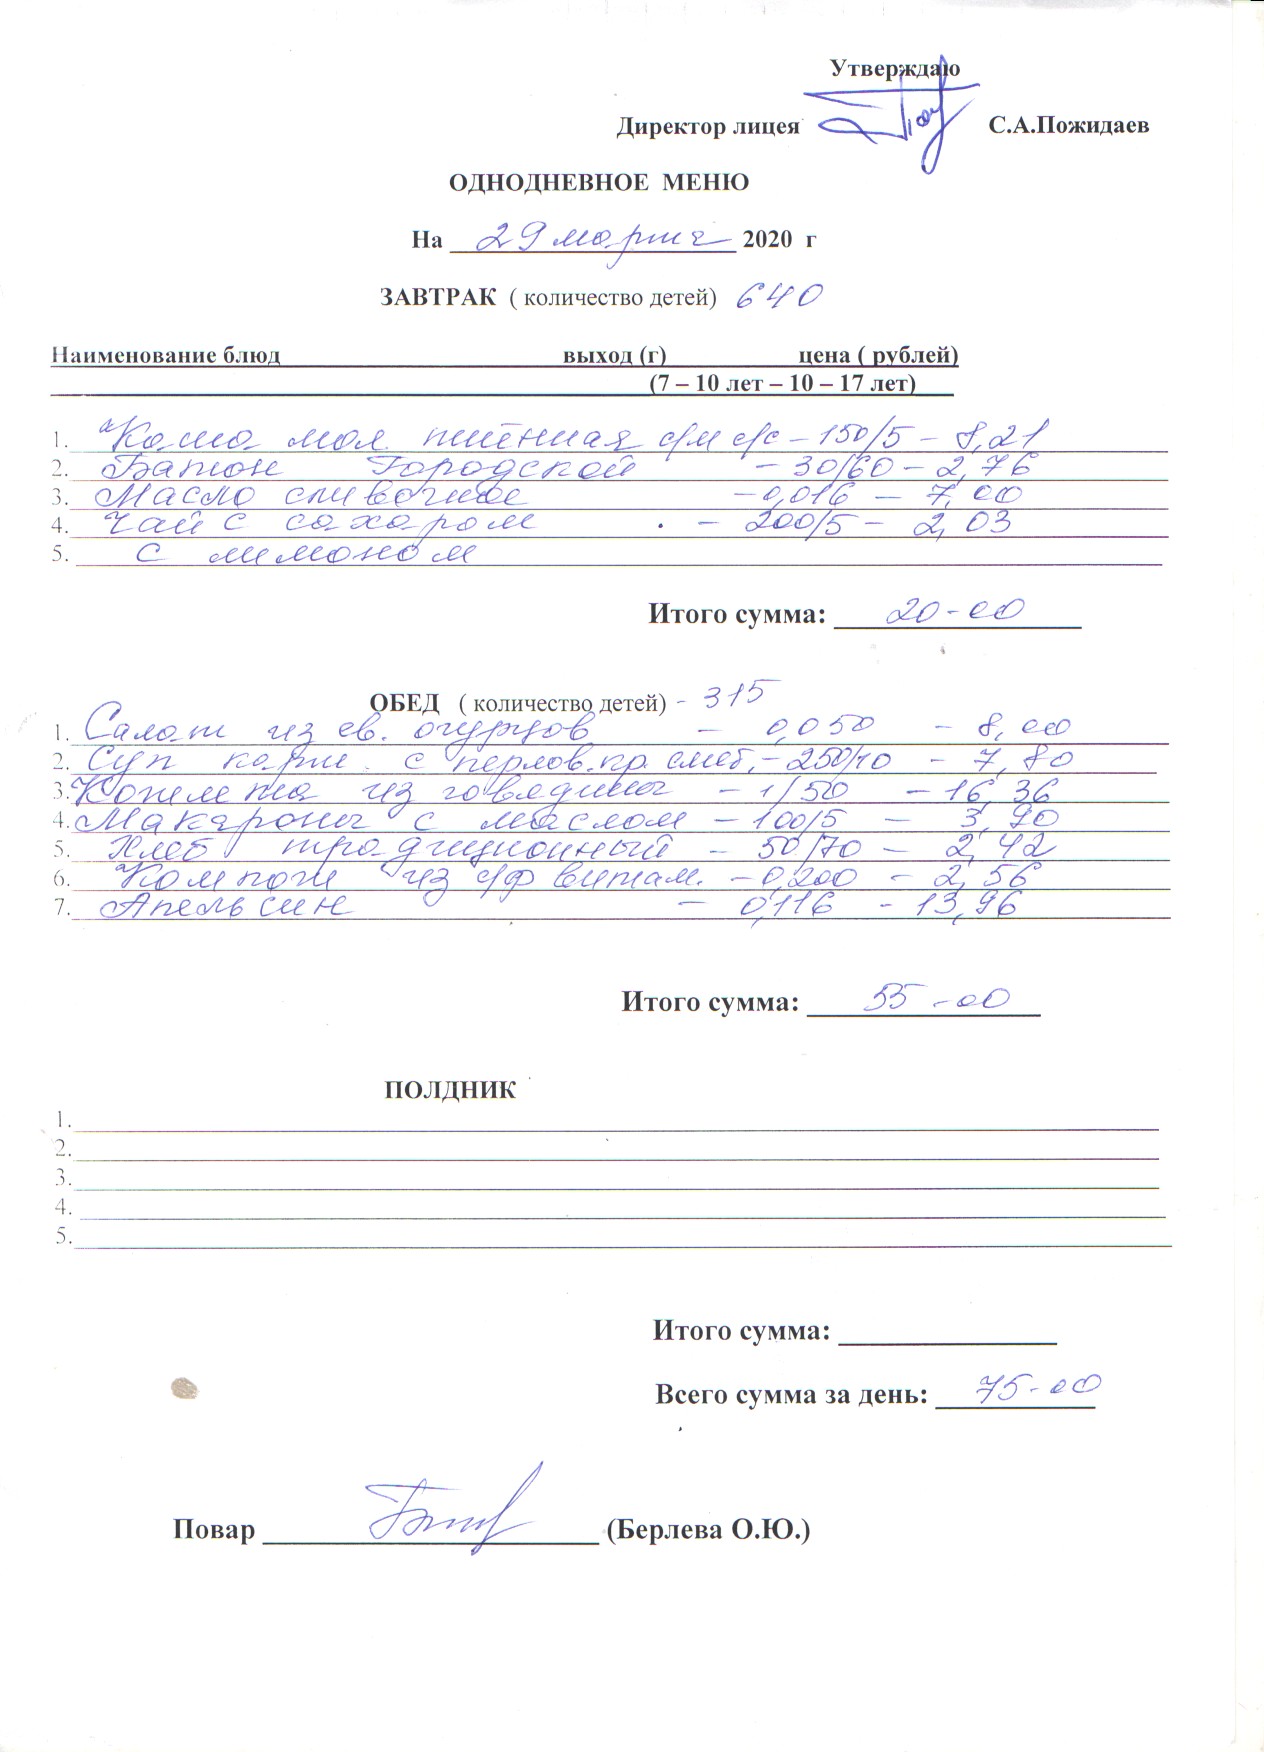 Утверждаю
Директор лицея С.А.Пожидаев
ОДНОДНЕВНОЕ МЕНЮ
На 29 марта 2020 г
ЗАВТРАК ( количество детей) 640
Наименование блюд выход (г) цена ( рублей)
(7 – 10 лет – 10 – 17 лет)
1. Каша мол пшённая с/м с/с – 150/5 – 8,21
2. Батон Городской – 30/60 – 2,76
3. Масло сливочное – 0,016 – 7,00
4. Чай с сахаром – 200/5 – 2,03
5. с лимоном
Итого сумма: 20-00
ОБЕД ( количество детей) - 315
1. Салат из св. огурцов – 0,050 – 8,00
2. Суп карт. с перлов.кр. смет, – 250/10 – 7,80
3. Котлета из говядины – 1/50 – 16,36
4. Макароны с маслом – 100/5 – 3,90
5. Хлеб традиционный – 50/70 – 2,42
6. Компот из с/ф витам. – 0,200 – 2,56
7. Апельсин – 0,116 - 13,96
Итого сумма: 55-00
ПОЛДНИК
1.
2.
3.
4.
5.
Итого сумма:
Всего сумма за день: 75-00
Повар (Берлева О.Ю.)